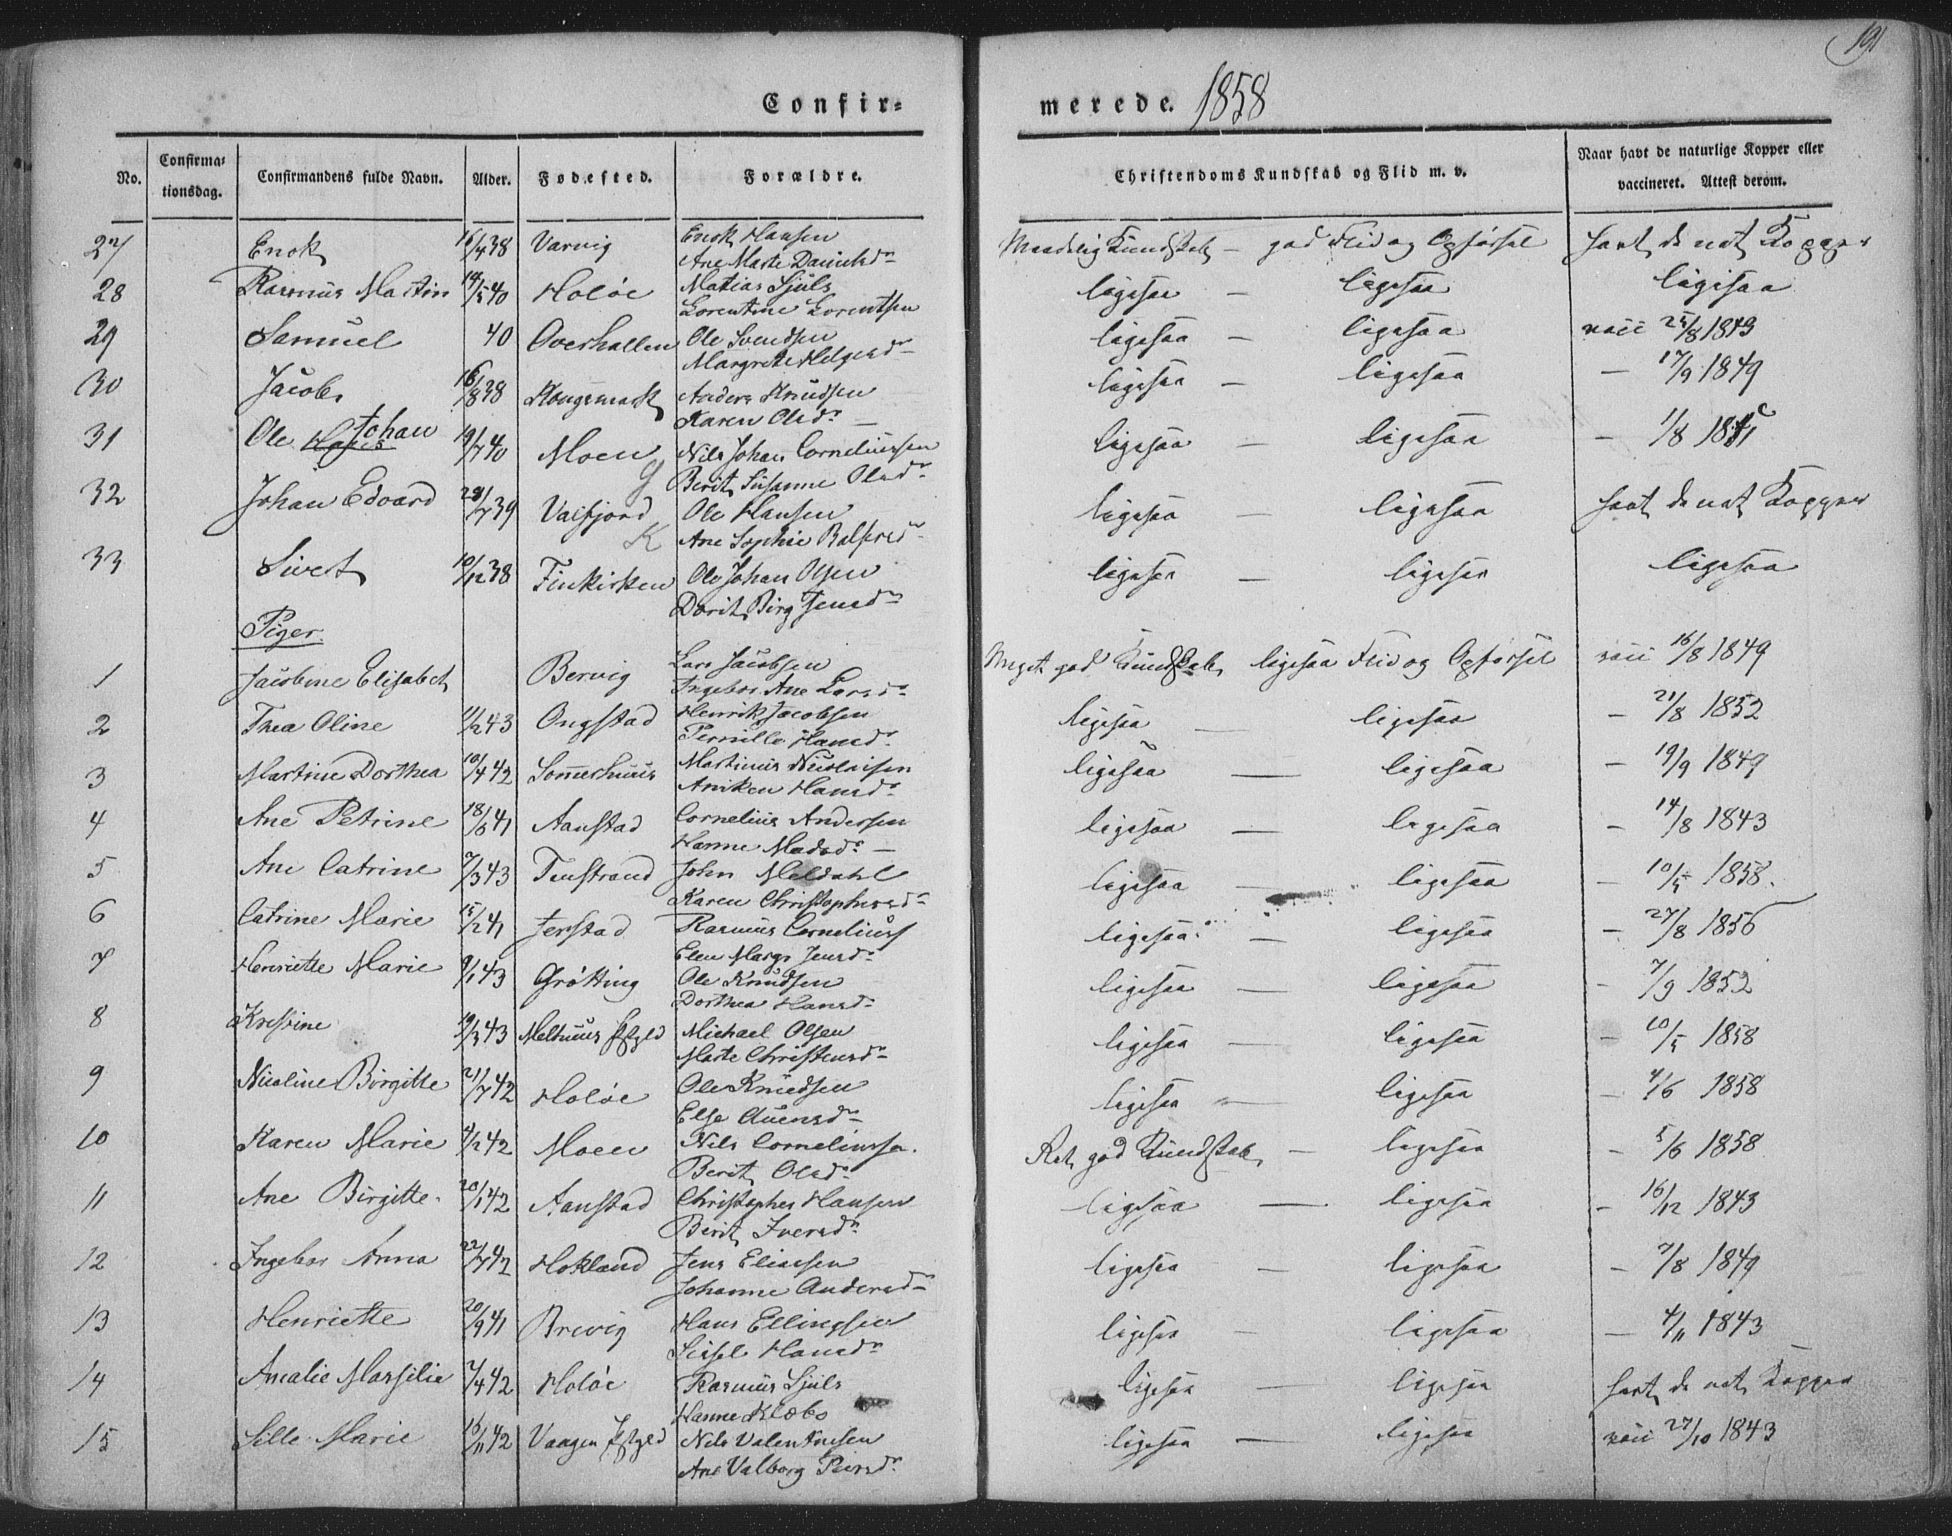 191
Confir=
merede. 1858
No.
Confirma=
tionsdag.
Confirmandens fulde Navn.
Alder.
Fødested.
Forældre.
Christendoms Kundskab og Flid m. v.
Naar havt de naturlige Kopper eller
vaccineret. Attest derom.
27 Enok 16/4 38 Varvig Enok Hansen Maadelig Kundskab — god Flid og Opførsel havt de nat Kopper
Ane Marte Danielsd.
28 Rasmus Martin 14/5 40 Holøe Matias Sjuls ligesaa — ligesaa ligesaa
Lorentine Lorentsen
29 Samuel 40 Overhallen Ole Svendsen ligesaa — ligesaa vacc 25/8 1843
Margrete Helgesd.
30 Jacob 16/8 38 Anders Knudsen ligesaa — ligesaa — 17/9 1849
Karen Olsd. —
31 Ole Hans Johan 19/7 40 Moen Nils Johan Corneliussen ligesaa — ligesaa — 1/8
Berit Susanne Olsd.
32 Johan Edvard 28/7 39 Vaifjord Ole Hansen ligesaa — ligesaa havt de nat Kopper
K Ane Sophie
33 Sivert 10/12 38 Finkirken Ole Johan Olsen ligesaa — ligesaa ligesaa
Dorit Birg Jensd.
Piger.
1 Jacobine Elisabet Bervig Lars Jacobsen Meget god Kundskab, ligesaa Flid og Opførsel vacc 16/8 1849
Ingebor Ane Larsd.
2 Thea Oline 11/2 43 Ongstad Henrik Jacobsen ligesaa — ligesaa — 21/8 1852
Pernille Hansd.
3 Martine Dorthea 10/4 42 Sommerhuus Martinus Nicolaisen ligesaa — ligesaa — 19/9 1849
Aniken Hansd.
4 Ane Petrine 18/6 41 Aanstad Cornelius Andersen ligesaa — ligesaa — 14/8 1843
Hanne Madsd. —
5 Ane Catrine 7/3 43 Finstrand John Meldahl ligesaa — ligesaa — 10/5 1858.
Karen Christophersd.
6 Catrine Marie 15/2 41 Jerstad Rasmus Corneliuss ligesaa — ligesaa — 27/8 1856
Elen Margr Jensd.
7 Henriette Marie 9/1 43 Grøtting Ole Knudsen ligesaa — ligesaa — 7/9 1852
Dorthea Hansd.
8 Krestine 19/3 43 Michael Olsen ligesaa — ligesaa — 10/5 1858
Marte Christensd.
9 Nicoline Birgitte 21/7 42 Holøe Ole Knudsen ligesaa — ligesaa — 4/6 1858
Else Auensd.
10 Karen Marie 4/2 42 Moen Nils Corneliussen. Ret god Kundskab, — ligesaa — 5/6 1858
Berit Olsd.
11 Ane Birgitte. 20/1 42 Aanstad Christopher Hansen ligesaa — ligesaa — 16/12 1843
Berit Iversd.
12 Ingebor Anna 22/7 42 Hokland Jens Eliasen ligesaa — ligesaa — 7/8 1849
Johanne Andersd.
13 Henriette 20/9 41 Brevig Hans Ellingsen ligesaa — ligesaa — 4/11 1843
Sissel Hansd.
14 Amalie Marsilie 7/4 42 Holøe Rasmus Sjuls ligesaa — ligesaa havt de nat Kopper
Hanne Klæbo
15 Sille Marie 16/11 42 Vaagen Nils Valentinsen ligesaa — ligesaa vacc 27/10 1843
Ane Valborg Peersd.